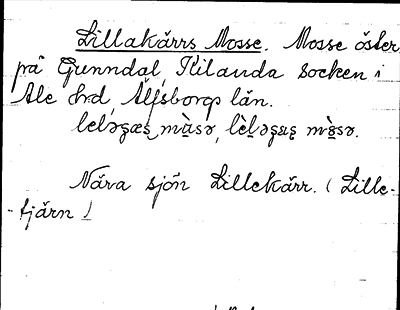 Lillakärrs Mosse. Mosse öster
på Gunndal, Kilanda socken i
Ale hrd, Älfsborgs län.
Nära sjön Lillekärr. (Lille-
-tjärn)